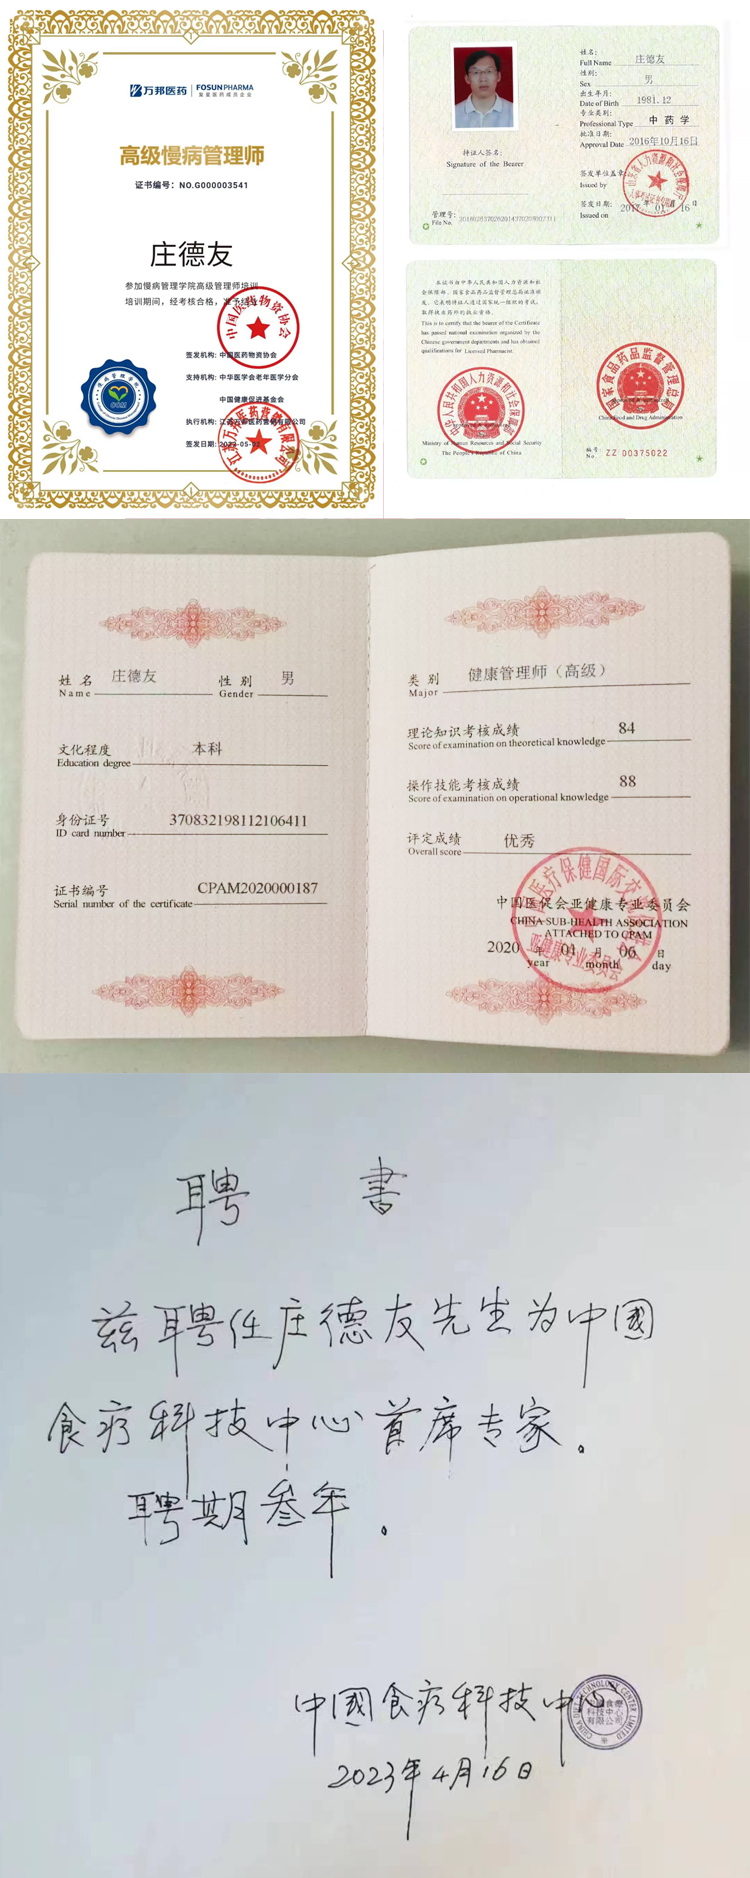 万邦医药
FOSUNPHARMA
复星医药成员企业
高级慢病管理师
证书编号：NO.G000003541
庄德友
参加慢病管理学院高级管理师培训，
培训期间，经考核合格，准予结业。
签发机构: 中国医药物资协会
支持机构: 中华医学会老年医学分会
中国健康促进基金会
执行机构: 江苏万邦医药营销有限公司
签发日期:
中国医药物资协会
江苏万邦医药营销有限公司
CCM
姓名: 庄德友
Full Name
性别: 男
Sex
出生年月: 1981.12
Date of Birth
专业类别: 中药学
Professional Type
批准日期: 2016年10月16日
Approval Date
持证人签名:
Signature of the Bearer
签发单位盖章:
Issued by
签发日期: 2017年01月16日
Issued on
管理号:
File No.
本证书由中华人民共和国人力资源和社
会保障部、国家食品药品监督管理总局批准颁
发。它表明持证人通过国家统一组织的考试,
取得执业药师的执业资格。
This is to certify that the bearer of the Certificate
has passed national examination organized by the
Chinese government departments and has obtained
qualifications for Licensed Pharmacist.
中华人民共和国人力资源和社会保障部
Ministry of Human Resources and Social Security
The People's Republic of China
国家食品药品监督管理总局
China Food and Drug Administration
编号: ZZ 00375022
No.
姓名 庄德友 性别 男
Name Gender
文化程度 本科
Education degree
身份证号 370832198112106411
ID card number
证书编号 CPAM2020000187
Serial number of the certificate
类别 健康管理师（高级）
Major
理论知识考核成绩 84
Score of examination on theoretical knowledge
操作技能考核成绩 88
Score of examination on operational knowledge
评定成绩 优秀
Overall score
中国医促会亚健康专业委员会
CHINA SUB-HEALTH ASSOCIATION
ATTACHED TO CPAM
2020 年 01 月 06 日
year month day
亚健康专业委员会
聘 書
兹聘任庄德友先生为中國
食疗科技中心首席专家。
聘期叁年。
中國食疗科技中心
2023年4月16日
CHINA DIET TECHNOLOGY CENTER LIMITED
中國食療
科技中心
有限公司